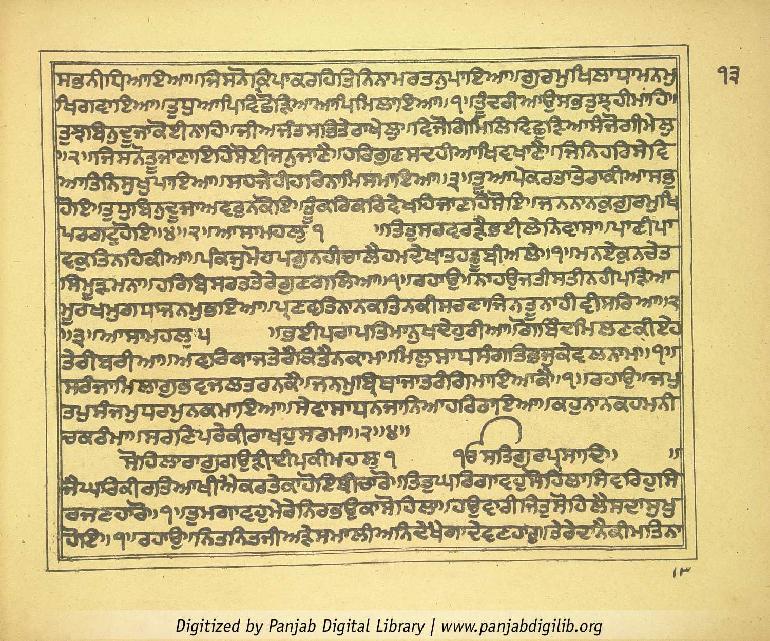 ੧੩
ਸਭਨੀਧਿਆਇਆ॥ਜਿਸਨੋਕ੍ਰਿਪਾਕਰਹਿਤਿਨਿਨਾਮਰਤਨੁਪਾਇਆ॥ਗੁਰਮੁਖਿਲਾਧਾਮਨਮੁ
ਖਿਗਵਾਇਆ॥ਤੁਧੁਆਪਿਵਿਛੋੜਿਆਆਪਿਮਿਲਾਇਆ॥੧॥ਤੂੰਦਰੀਆਉਸਭਤੁਝਹੀਮਾਹਿ॥
ਤੁਝਬਿਨੁਦੂਜਾਕੋਈਨਾਹਿ॥ਜੀਅਜੰਤਸਭਿਤੇਰਾਖੇਲੁ॥ਵਿਜੋਗਿਮਿਲਿਵਿਛੁੜਿਆਸੰਜੋਗੀਮੇਲੁ
॥੨॥ਜਿਸਨੋਤੂਜਾਣਾਇਹਿਸੋਈਜਨੁਜਾਣੈ॥ਹਰਿਗੁਣਸਦਹੀਆਖਿਵਖਾਣੈ॥ਜਿਨਿਹਰਿਸੇਵਿ
ਆਤਿਨਿਸੁਖੁਪਾਇਆ॥ਸਹਜੇਹੀਹਰਿਨਾਮਿਸਮਾਇਆ॥੩॥ਤੂਆਪੇਕਰਤਾਤੇਰਾਕੀਆਸਭੁ
ਹੋਇ॥ਤੁਧੁਬਿਨੁਦੂਜਾਅਵਰੁਨਕੋਇ॥ਤੂਕਰਿਕਰਿਵੇਖਹਿਜਾਣਹਿਸੋਇ॥ਜਨਨਾਨਕਗੁਰਮੁਖਿ
ਪਰਗਟੁਹੋਇ॥੪॥੨॥ਆਸਾਮਹਲੁ ੧ ॥ਤਿਤੁਸਰਵਰੜੈਭਈਲੇਨਿਵਾਸਾ॥ਪਾਣੀਪਾ
ਵਕੁਤਿਨਹਿਕੀਆ॥ਪੰਕਜੁਮੋਹਪਗੁਨਹੀਚਾਲੈਹਮਦੇਖਾਤਹਡੂਬੀਅਲੇ॥੧॥ਮਨਏਕੁਨਚੇਤ
ਸਿਮੂੜਮਨਾ॥ਹਰਿਬਿਸਰਤਤੇਰੇਗੁਣਗਲਿਆ॥੧॥ਰਹਾਉ॥ਨਾਹਉਜਤੀਸਤੀਨਹੀਪੜਿਆ
ਮੂਰਖਮੁਗਧਾਜਨਮੁਭਇਆ॥ਪ੍ਰਣਵਤਿਨਾਨਕਤਿਨਕੀਸਰਣਾਜਿਨਤੂਨਾਹੀਵੀਸਰਿਆ॥੨
॥੩॥ਆਸਾਮਹਲੁ ੫ ॥ਭਈਪਰਾਪਤਿਮਾਨੁਖਦੇਹੁਰੀਆ॥ਗੋਬਿੰਦਮਿਲਣਕੀਇਹ
ਤੇਰੀਬਰੀਆ॥ਅਵਰਿਕਾਜਤੇਰੈਕਿਤੈਨਕਾਮ॥ਮਿਲੁਸਾਧਸੰਗਤਿਭਜੁਕੇਵਲਨਾਮ॥੧॥
ਸਰੰਜਾਮਿਲਾਗੁਭਵਜਲਤਰਨਕੈ॥ਜਨਮੁਬ੍ਰਿਥਾਜਾਤਰੰਗਿਮਾਇਆਕੈ॥੧॥ਰਹਾਉ॥ਜਪੁ
ਤਪੁਸੰਜਮੁਧਰਮੁਨਕਮਾਇਆ॥ਸੇਵਾਸਾਧਨਜਾਨਿਆਹਰਿਰਾਇਆ॥ਕਹੁਨਾਨਕਹਮਨੀ
ਚਕਰੰਮਾ॥ਸਰਣਿਪਰੇਕੀਰਾਖਹੁਸਰਮਾ॥੨॥੪॥
ਸੋਹਿਲਾਰਾਗੁਗਉੜੀਦੀਪਕੀਮਹਲੁ ੧ ੴਸਤਿਗੁਰਪ੍ਰਸਾਦਿ॥ ॥
ਜੈਘਰਿਕੀਰਤਿਆਖੀਐਕਰਤੇਕਾਹੋਇਬੀਚਾਰੋ॥ਤਿਤੁਘਰਿਗਾਵਹੁਸੋਹਿਲਾਸਿਵਰਿਹੁਸਿ
ਰਜਣਹਾਰੋ॥੧॥ਤੁਮਗਾਵਹੁਮੇਰੇਨਿਰਭਉਕਾਸੋਹਿਲਾ॥ਹਉਵਾਰੀਜਿਤੁਸੋਹਿਲੈਸਦਾਸੁਖੁ
ਹੋਇ॥੧॥ਰਹਾਉ॥ਨਿਤਨਿਤਜੀਅੜੇਸਮਾਲੀਅਨਿਦੇਖੈਗਾਦੇਵਣਹਾਰੁ॥ਤੇਰੇਦਾਨੈਕੀਮਤਿਨਾ
੧੩
Digitized by Panjab Digital Library | www.panjabdigilib.org